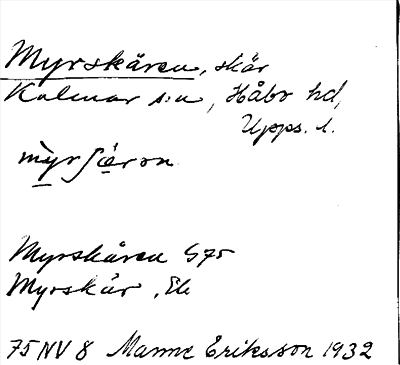 Myrskären, skär
Kalmar s:n, Håbo hd,
Upps. l.
mỳrʃä̀ron
Myrskären G75
Myrskär, Ek
75 NV 8 Manne Eriksson 1932